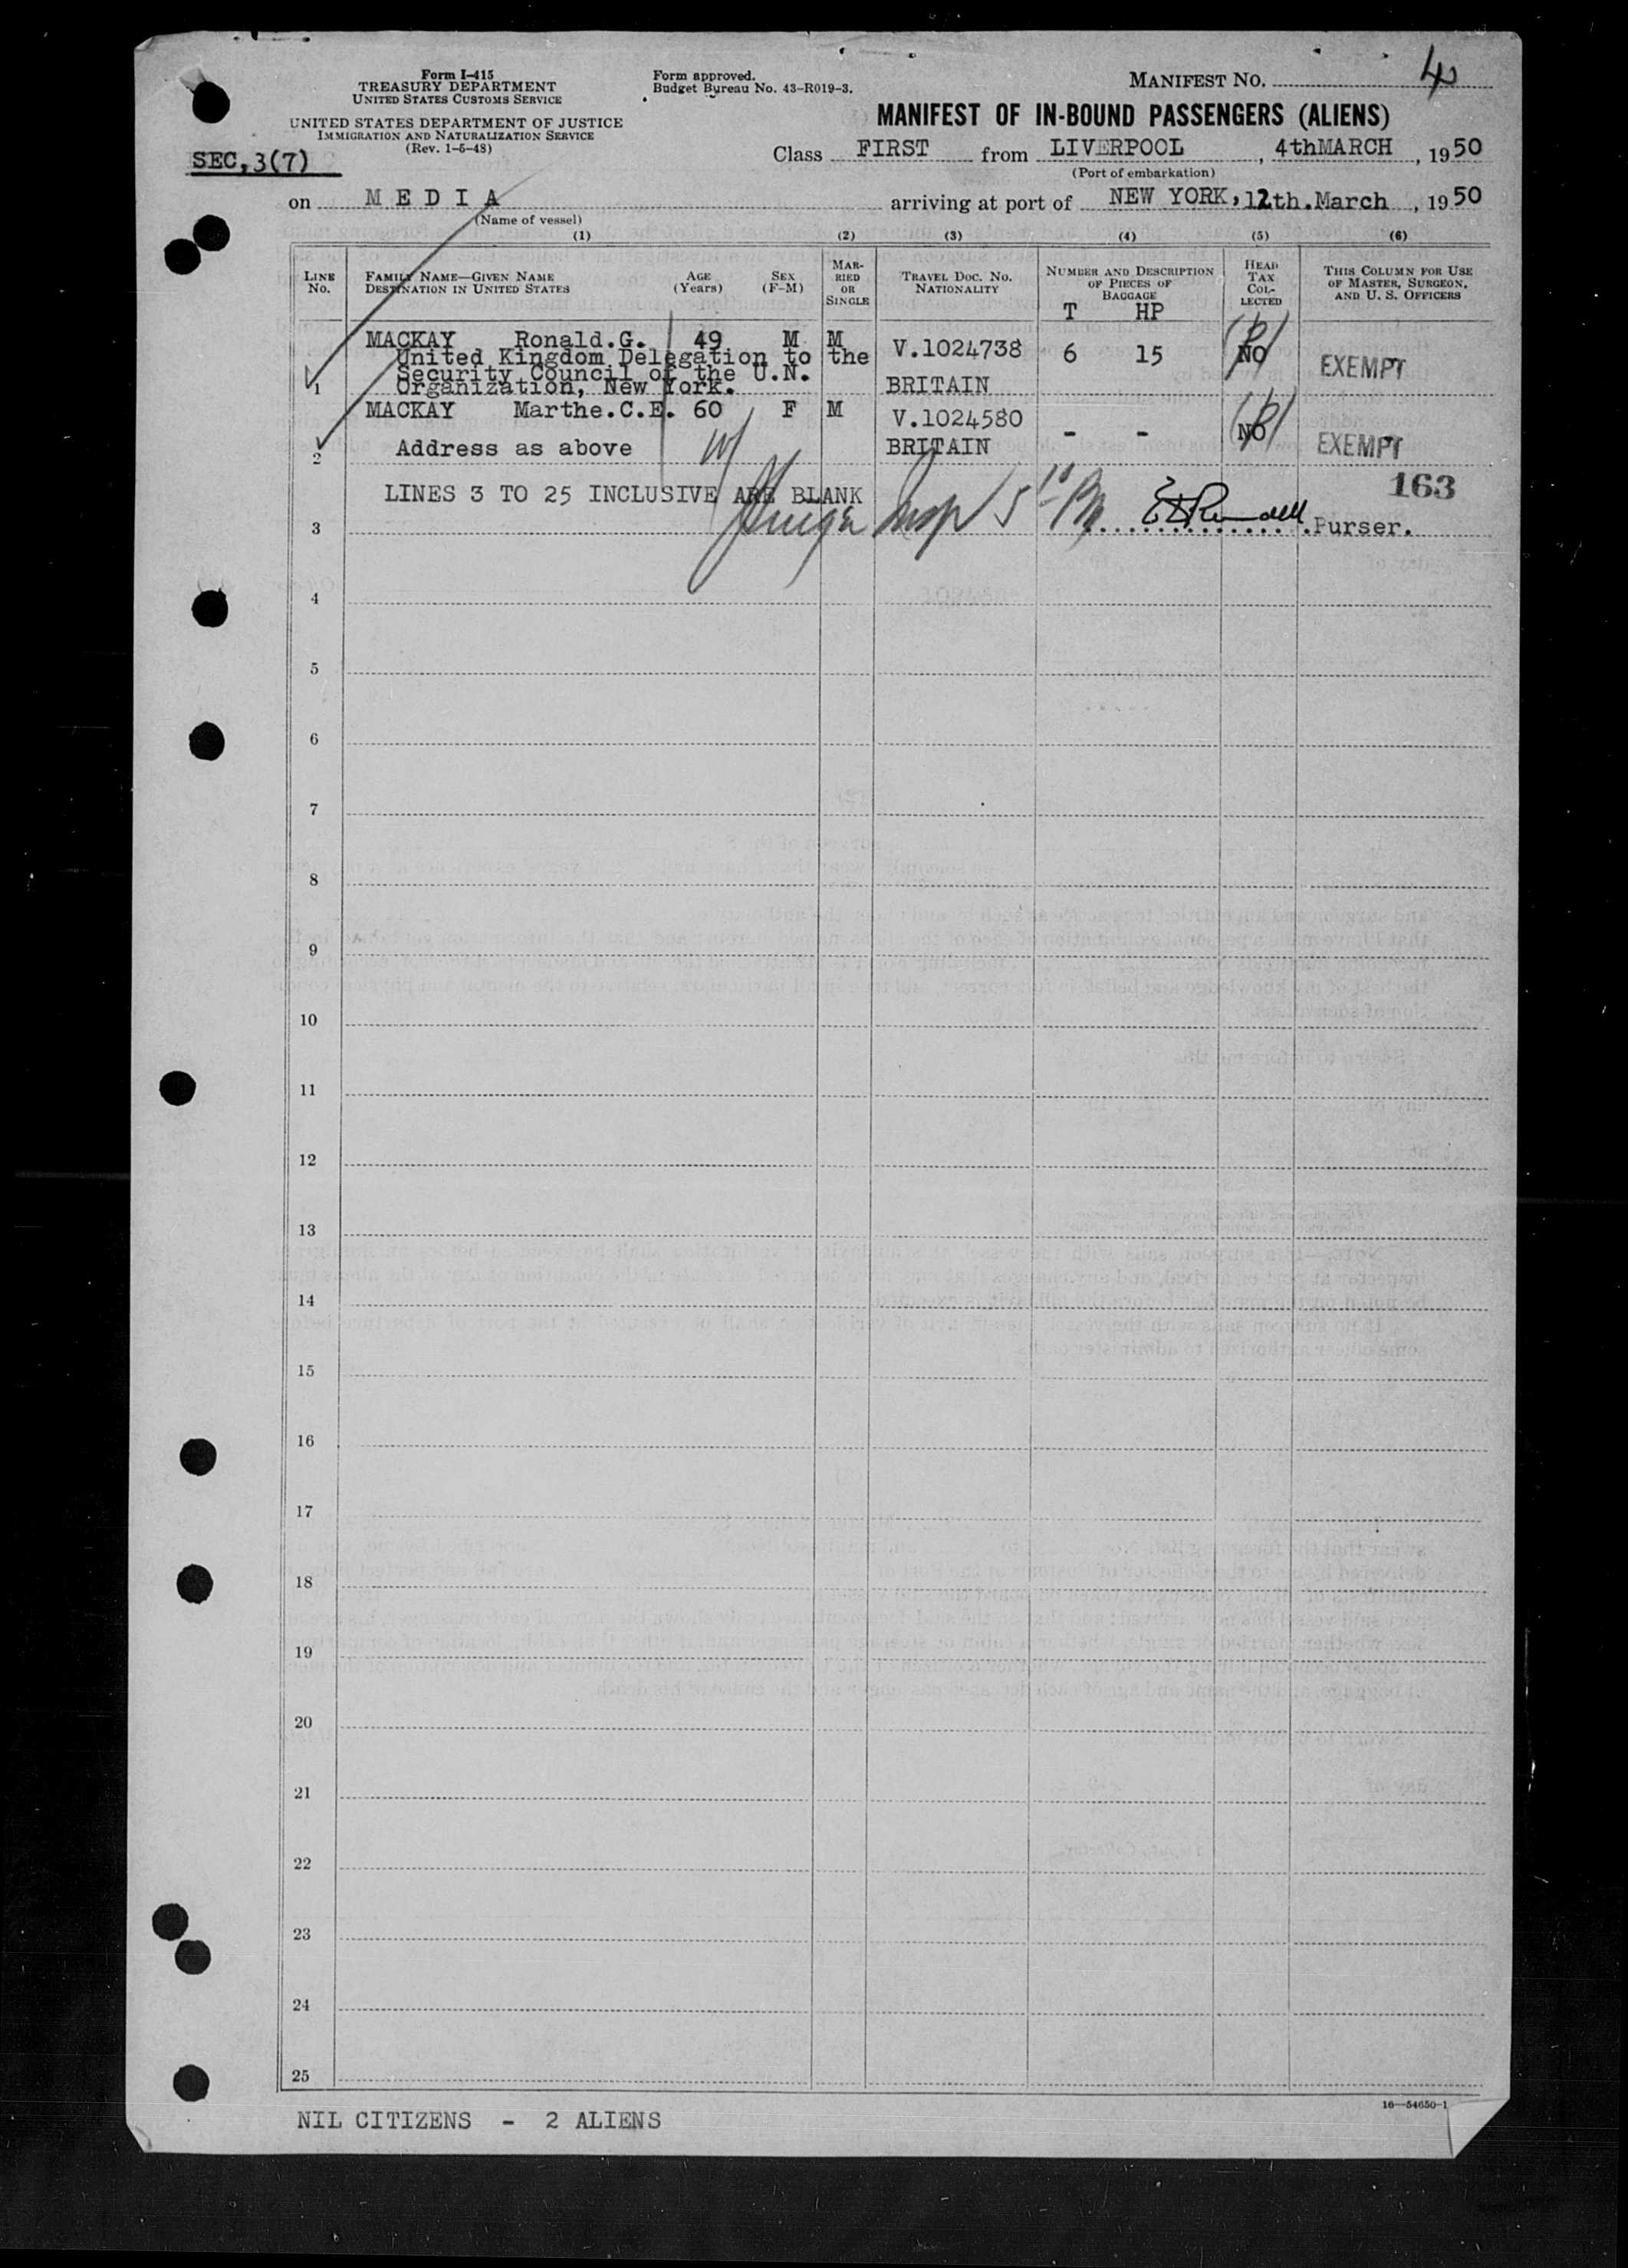 Form I-415
TREASURY DEPARTMENT
UNITED STATES CUSTOMS SERVICE
UNITED STATES DEPARTMENT OF JUSTICE
IMMIGRATION AND NATURALIZATION SERVICE
(Rev. 1-6-48)
SEC,3(7)
Form approved.
Budget Bureau No. 43-R019-3.
MANIFEST NO. 4
MANIFEST OF IN-BOUND PASSENGERS (ALIENS)
Class FIRST from LIVERPOOL, 4thMARCH, 1950
(Port of embarkation)
on M E D I A arriving at port of NEW YORK, 12th.March, 1950
(Name of vessel)
(1) (2) (3) (4) (5) (6)
LINE NO. FAMILY NAME—GIVEN NAME DESTINATION IN UNITED STATES AGE (Years) SEX (F-M) MARRIED OR SINGLE TRAVEL DOC. NO. NATIONALITY NUMBER AND DESCRIPTION OF PIECES OF BAGGAGE HEAD TAX COLLECTED THIS COLUMN FOR USE OF MASTER, SURGEON, AND U. S. OFFICERS
T HP
MACKAY Ronald.G. 49 M M V.1024738 6 15 NO EXEMPT
United Kingdom Delegation to the
Security Council of the U.N.
1 Organization, New York. BRITAIN
MACKAY Marthe.C.E. 60 F M V.1024580 - - NO EXEMPT
2 Address as above BRITAIN
163
LINES 3 TO 25 INCLUSIVE ARE BLANK
3 Purser.
4
5
6
7
8
9
10
11
12
13
14
15
16
17
18
19
20
21
22
23
24
25
16—54650-1
NIL CITIZENS - 2 ALIENS